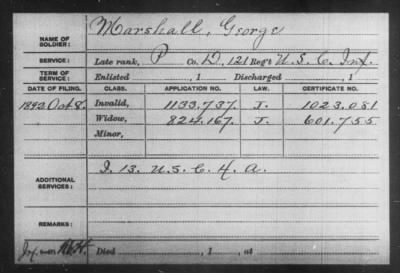 NAME OF SOLDIER: Marshall, George
SERVICE: Late rank, P Co. D, 121 Reg't U.S.C. Inf.
TERM OF SERVICE: Enlisted , 1 Discharged , 1
DATE OF FILING. CLASS. APPLICATION NO. LAW. CERTIFICATE NO.
1892 Oct 8. Invalid, 1133.737. J. 1023.081
Widow, 824.167. J. 601.755
Minor,
ADDITIONAL SERVICES: I. 13. U.S.C.H.A.
REMARKS:
Died , 1 , at